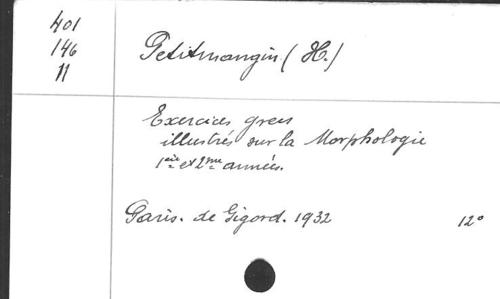 401
146
11
Petitmangin (H.)
Exercices grecs
illustrés sur la Morphologie
1ère et 2me années.
Paris. de Gigord. 1932 12°